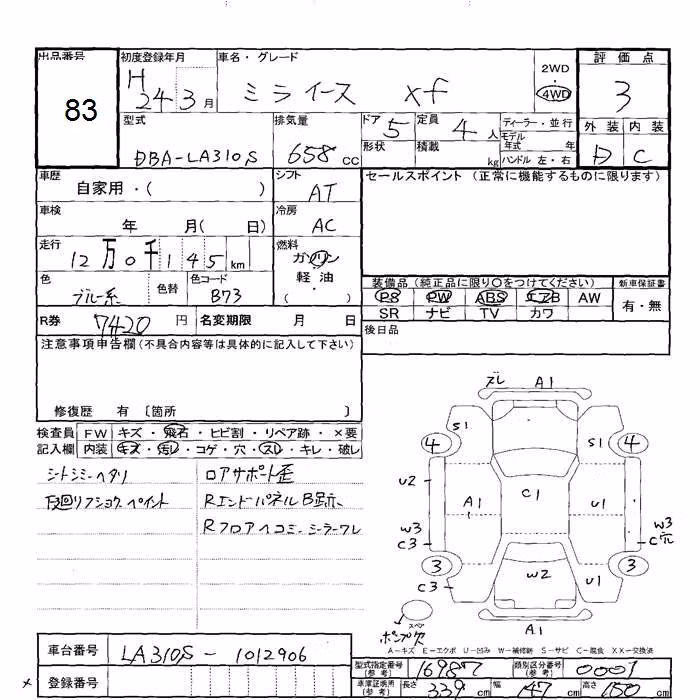 出品番号
83
初度登録年月
H
24 3 月
車名・グレード
ミライース Xf
2WD
4WD
評価点
3
外装 内装
D C
型式
DBA-LA310S
排気量
658 cc
ドア 5
定員 4 人
形状
積載 kg
ディーラー・並行
モデル年式 年
ハンドル 左・右
車歴
自家用・( )
シフト
AT
セールスポイント (正常に機能するものに限ります)
車検
年 月( 日)
冷房
AC
走行
12 万 0 千 1 4 5 km
燃料
ガソリン
軽油
( )
色
ブルー系
色替
色コード
B73
装備品 (純正品に限り○をつけてください)
新車保証書
PS PW ABS エアB AW
SR ナビ TV カワ
有・無
R券 7420 円
名変期限 月 日
後日品
注意事項申告欄 (不具合内容等は具体的に記入して下さい)
修復歴 有 〔箇所 〕
検査員
記入欄
FW キズ・飛石・ヒビ割・リペア跡・×要
内装 キズ・汚レ・コゲ・穴・スレ・キレ・破レ
シートシミ・ヘタリ
下回リフショク、ペイント
ロアサポート歪
Rエンドパネル B跡、
Rフロアヘコミ、シーラーワレ
ズレ A1
S1 S1
4 4
U2
A1 C1 U1
W3
C3
W3
C穴
3 3
C3
W2
U1
スペア
ポンプ欠
A1
A-キズ E-エクボ U-凹み W-補修跡 S-サビ C-腐食 XX-交換済
車台番号
LA310S - 1012906
登録番号
×
型式指定番号
(参考)
16987
類別区分番号
(参考)
0001
車庫証明用
(参考)
長さ 339 cm
幅 147 cm
高さ 150 cm